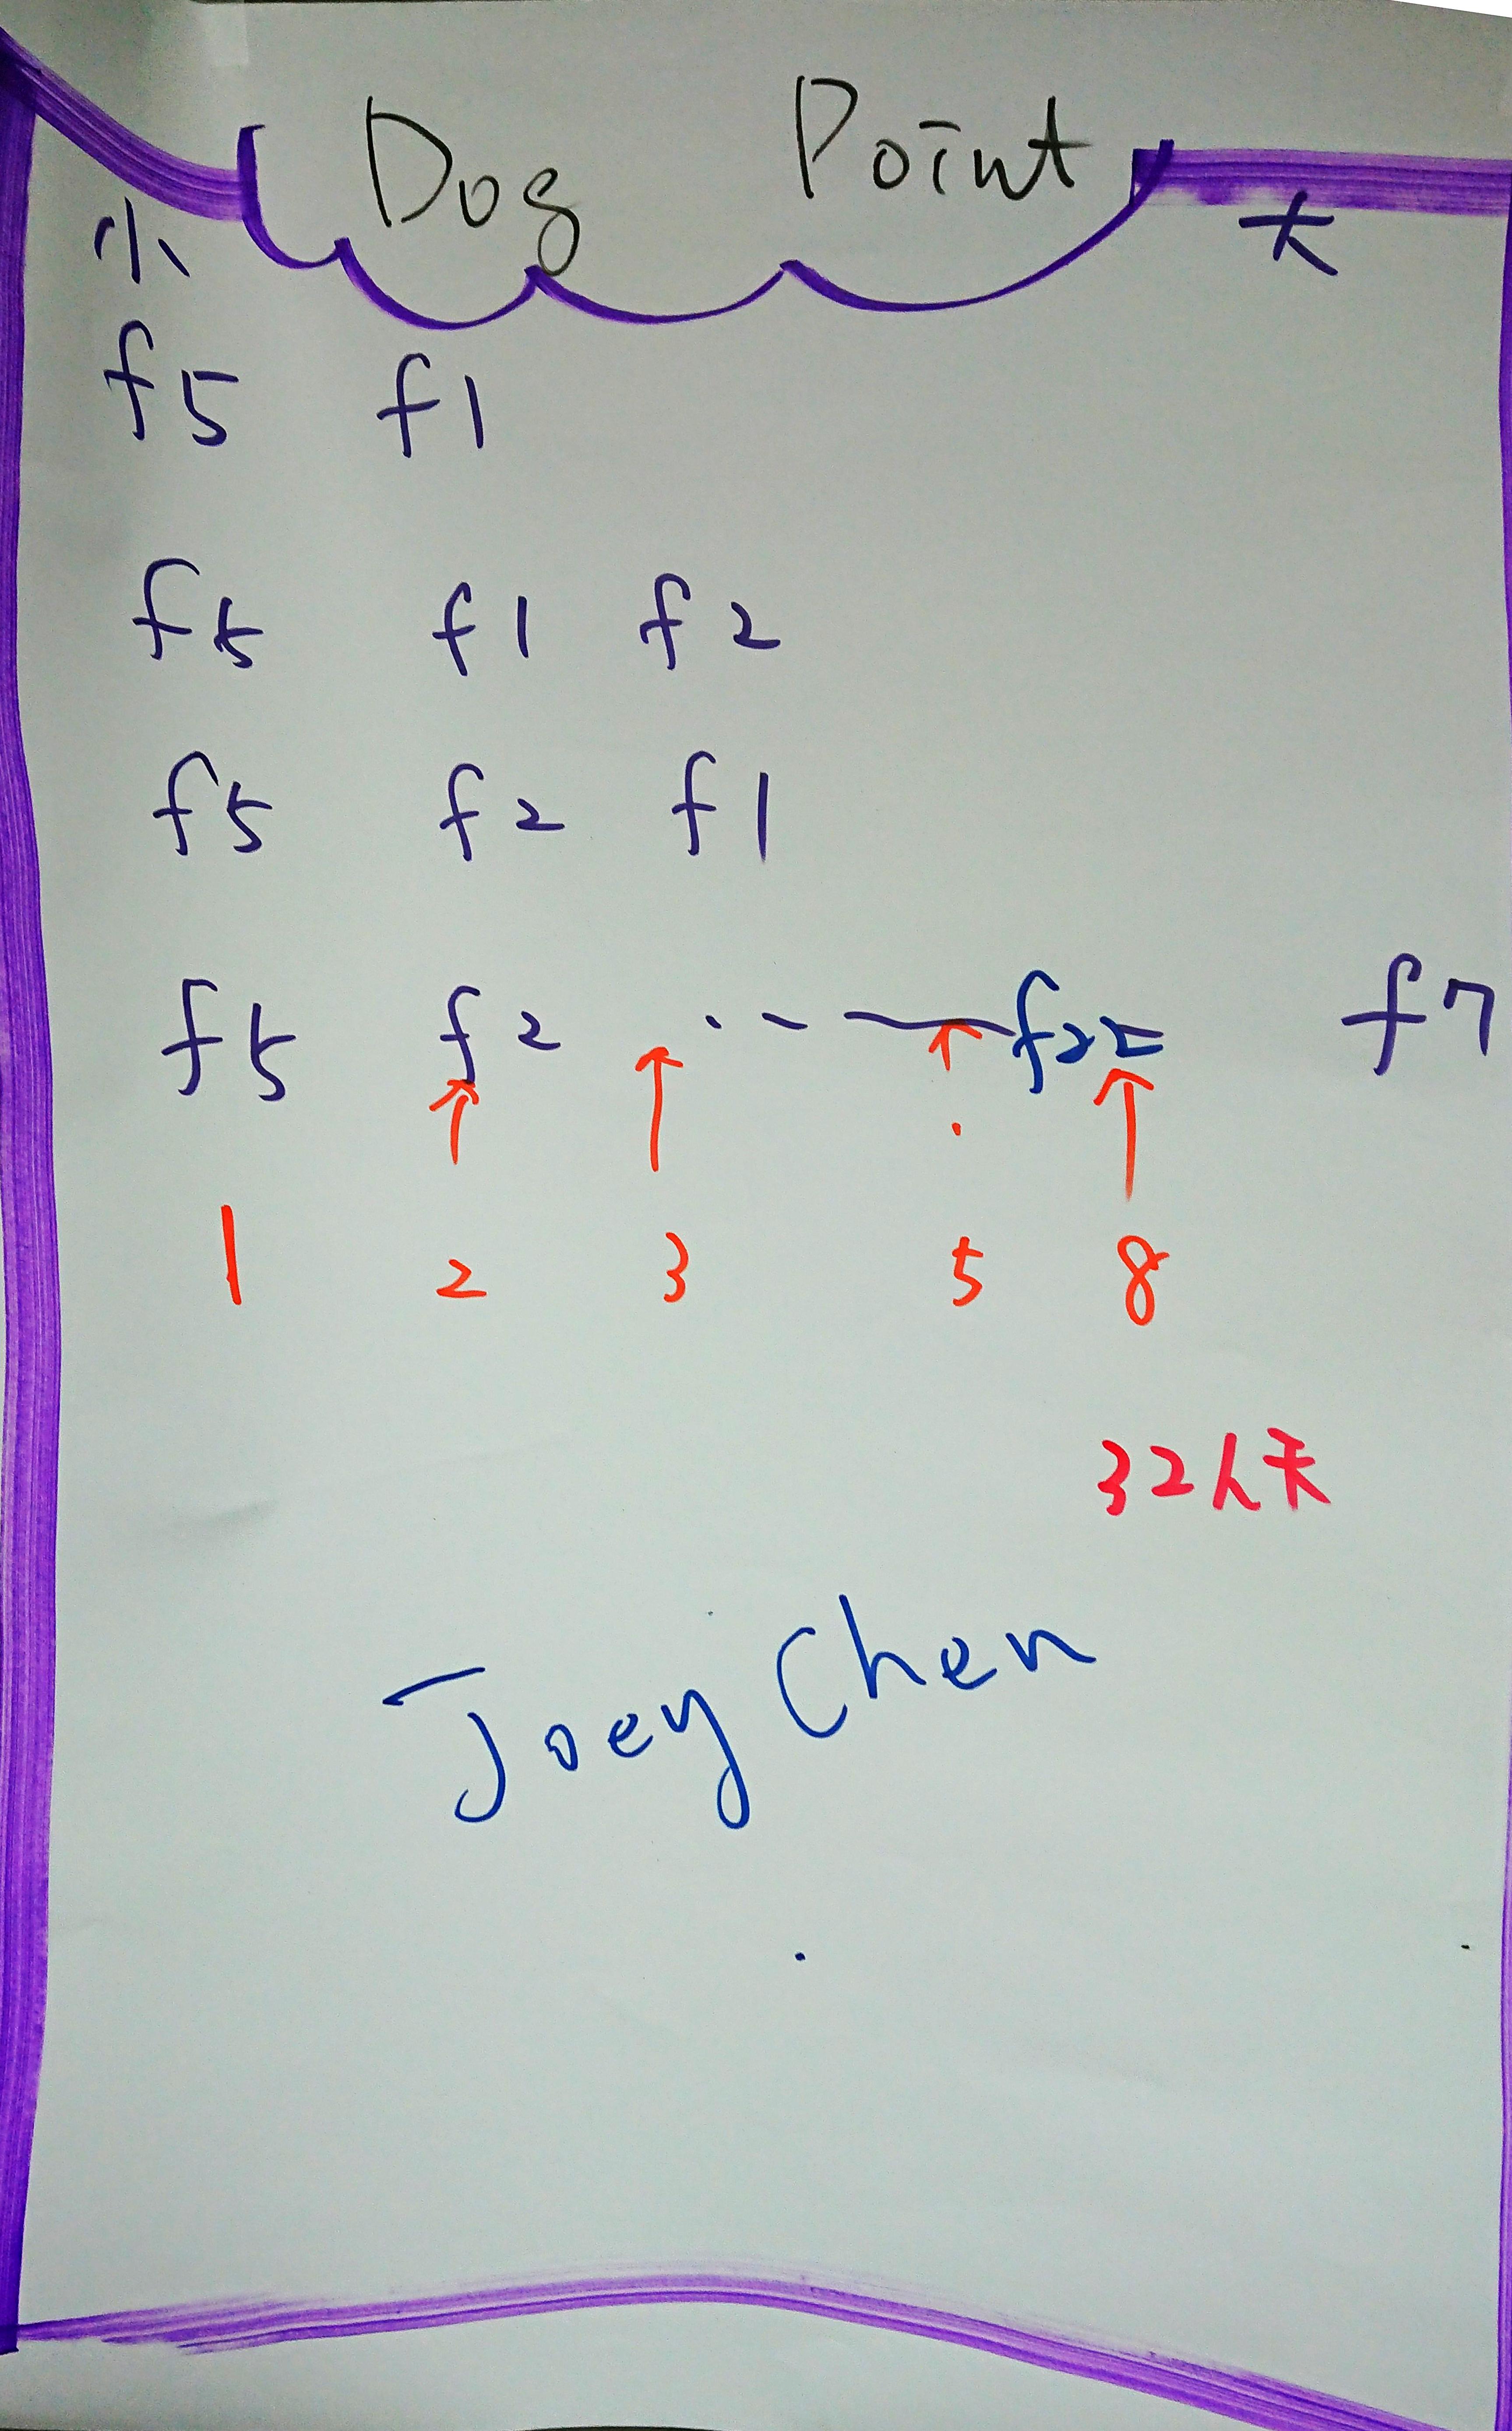 Dog Point
小 大
f5 f1
f5 f1 f2
f5 f2 f1
f5 f2 ..— f22 f7
1 2 3 5 8
32人天
Joey Chen